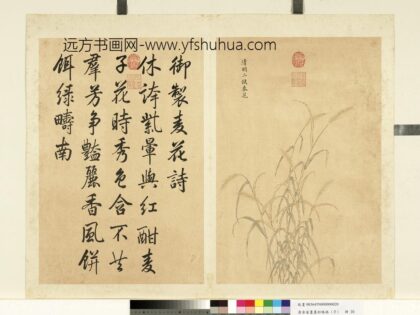 远方书画网-www.yfshuhua.com
清明二候麦花
御製麦花詩
休誇紫暈與紅酣麦
子花時秀色含不共
羣芳争豔麗香風餅
餌緑疇南